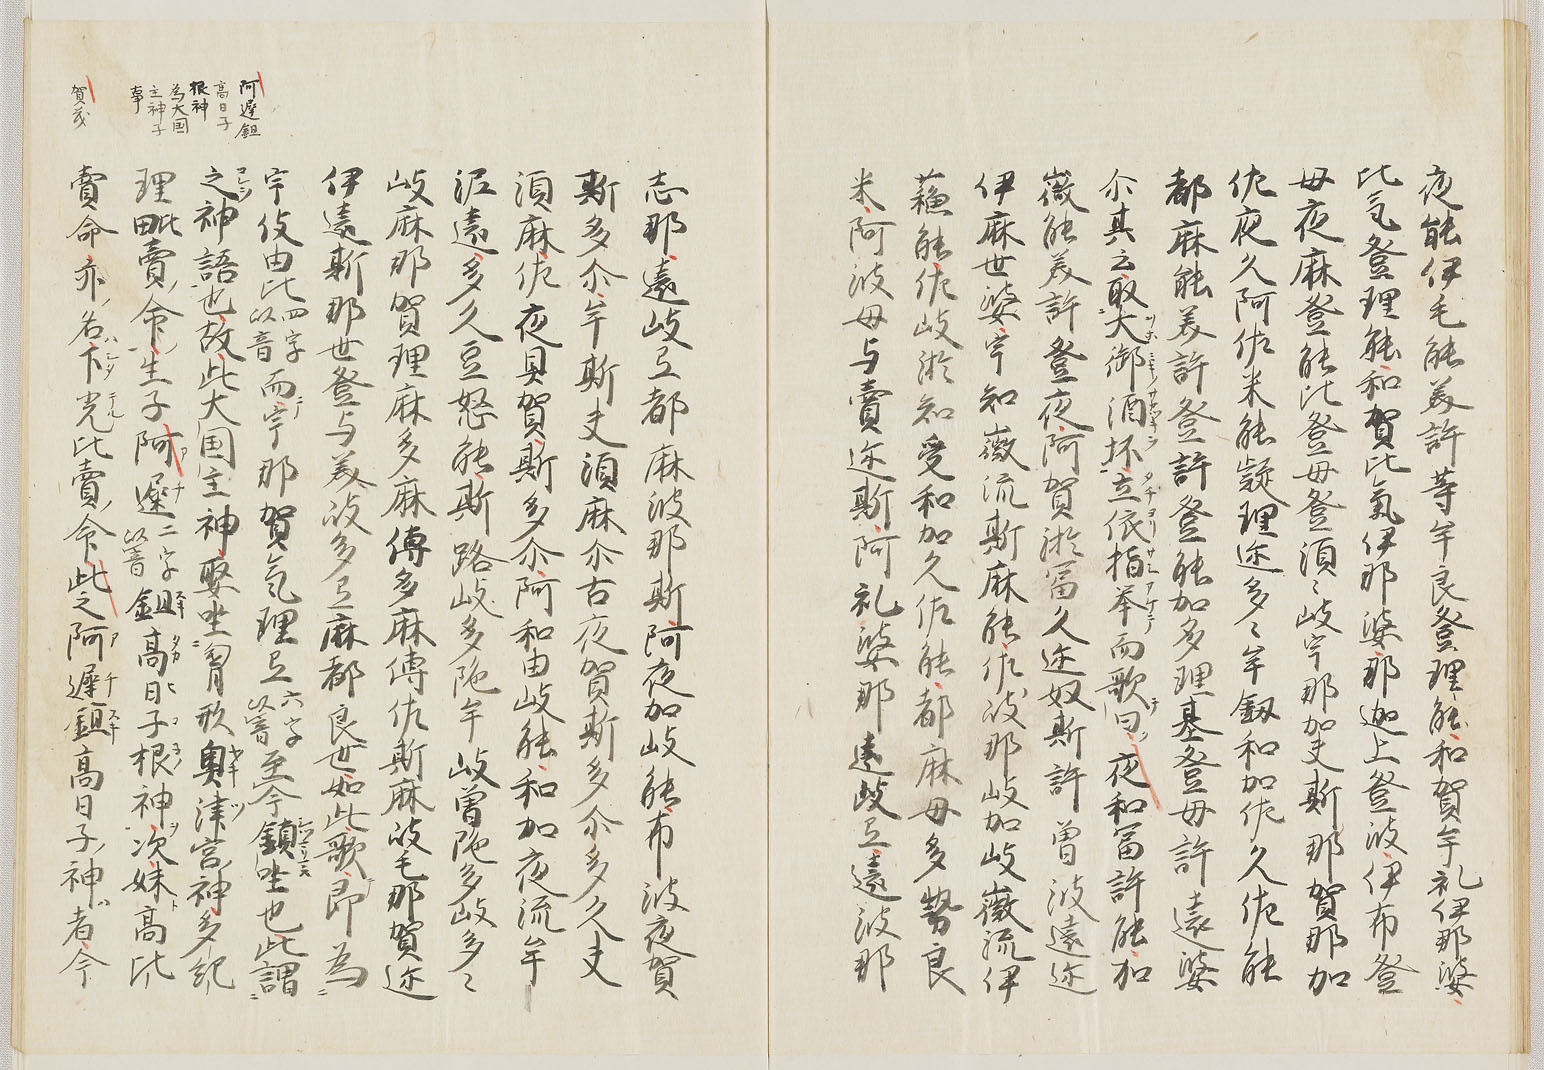 夜能伊毛能美許等牟良登理能和賀牟礼伊那婆
比気登理能和賀比氣伊那婆那迦上登波伊布登
毋夜麻登能比登毋登湏々岐宇那加夫斯那賀那加
佐夜久阿佐米能疑理迩多々牟釼和加佐久佐能
都麻能美許登許登能加多理基登毋許遠婆
尒其云取大御酒坏立依指挙而歌曰夜和冨許能加
微能美許登夜阿賀淤冨久迩奴斯許曽波遠迩
伊麻世婆宇知微流斯麻能佐岐那岐加岐微流伊
蘓能佐岐淤知受和加久佐能都麻毋多勢良
米阿波毋与賣迩斯阿礼婆那遠岐弖遠波那
志那遠岐弖都麻波那斯阿夜加岐能布波夜賀
斯多尒牟斯夫湏麻尒古夜賀斯多尒多久夫
湏麻佐夜具賀斯多尒阿和由岐能和加夜流牟
泥遠多久豆怒能斯路岐多陁牟岐曽陁多岐多々
岐麻那賀理麻多麻傳多麻傳佐斯麻岐毛那賀迩
伊遠斯那世登与美岐多弖麻都良世如此歌即為
宇伎由比四字以音而宇那賀氣理弖六字以音至今鎮坐也此謂
之神語也故此大国主神娶坐胷形奥津宮神多紀
理毗賣命生子阿遅二字以音鉏高日子根神次妹高比
賣命亦名下光比賣命此之阿遅鉏高日子神者今
阿遅鉏
高日子
根神
為大国
主神子
事
賀茂